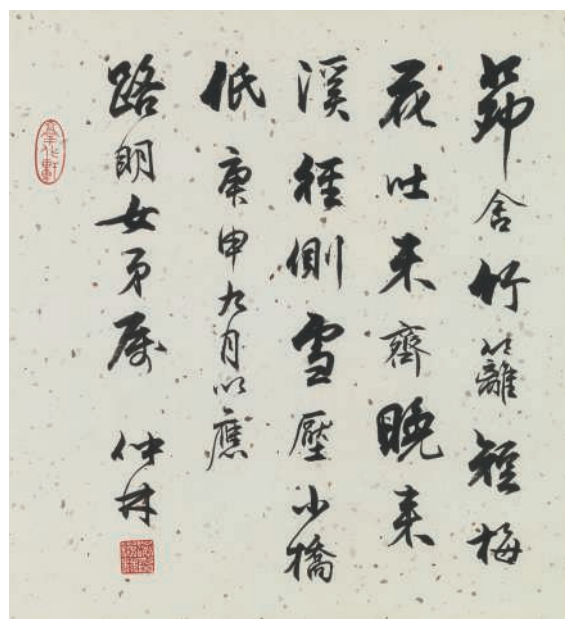 茆舍竹籬短梅
花吐未齊晚来
溪徑側雪壓小橋
低 庚申九月以應
路明女弟属 仲林